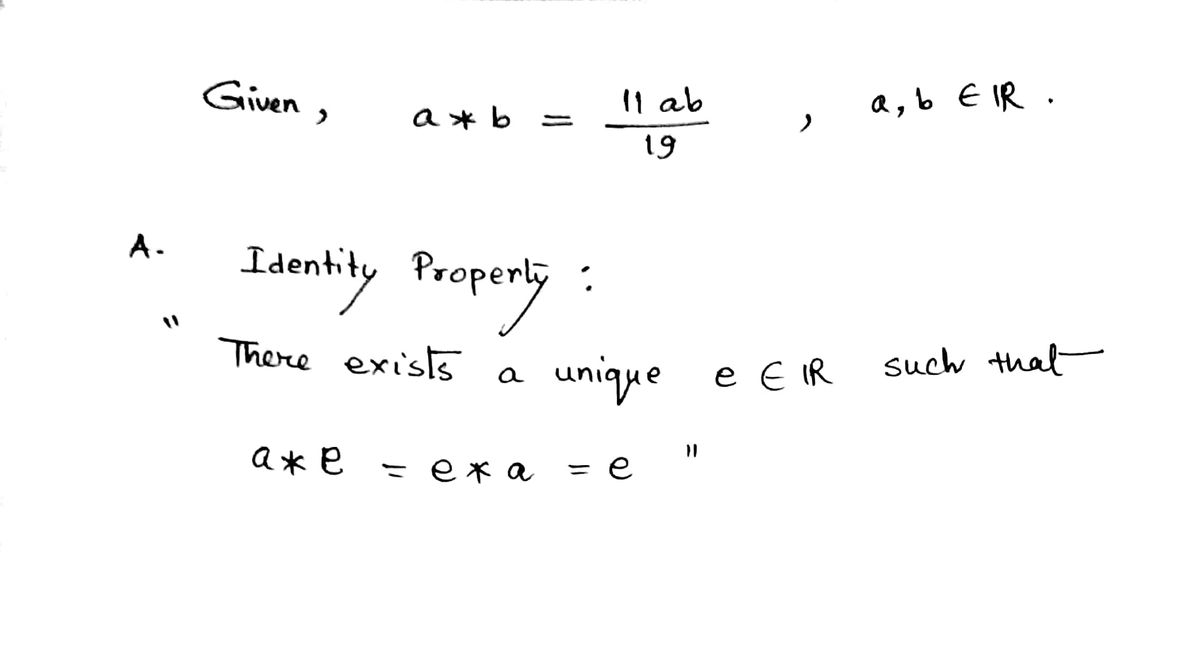 Given, a * b = 11 ab / 19 , a, b ∈ ℝ .
A. Identity Property :
" There exists a unique e ∈ ℝ such that
a * e = e * a = e "